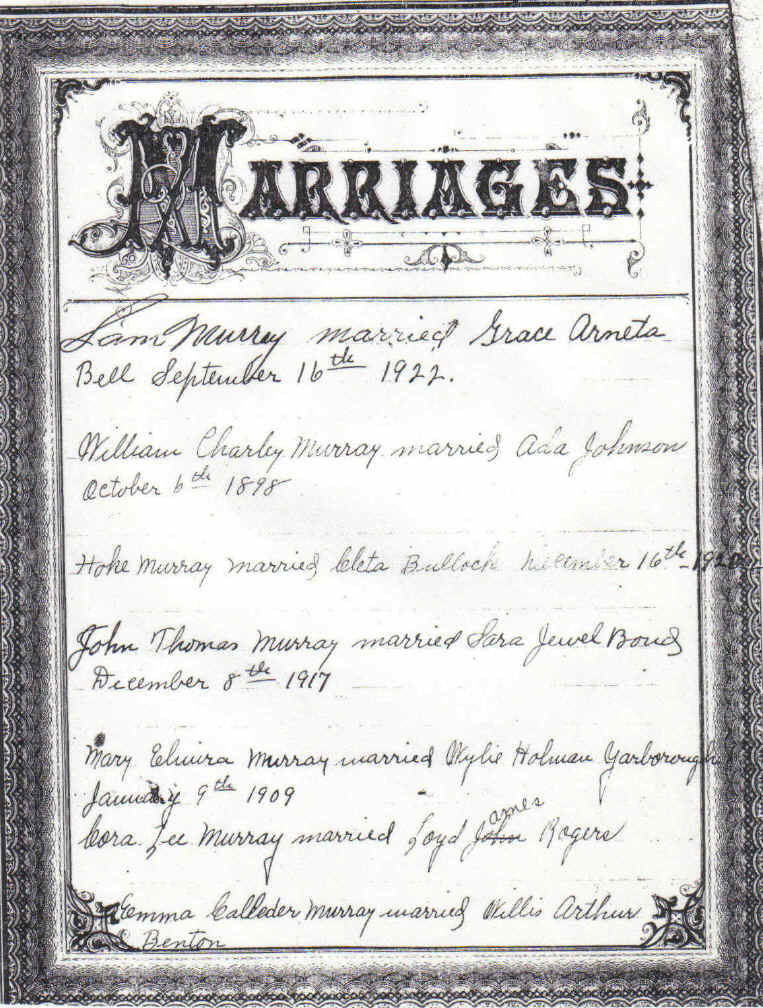 MARRIAGES
Sam Murray married Grace Arneta
Bell September 16th 1922.
William Charley Murray married Ada Johnson
October 6th 1898
Hoke Murray married Cleta Bullock December 16th
John Thomas Murray married Sara Jewel Bond
December 8th 1917
Mary Elmira Murray married Wylie Holman Yarborough
January 9th 1909
ames
Cora Lee Murray married Loyd John Rogers
Emma Murray married Willis Arthur
Benton